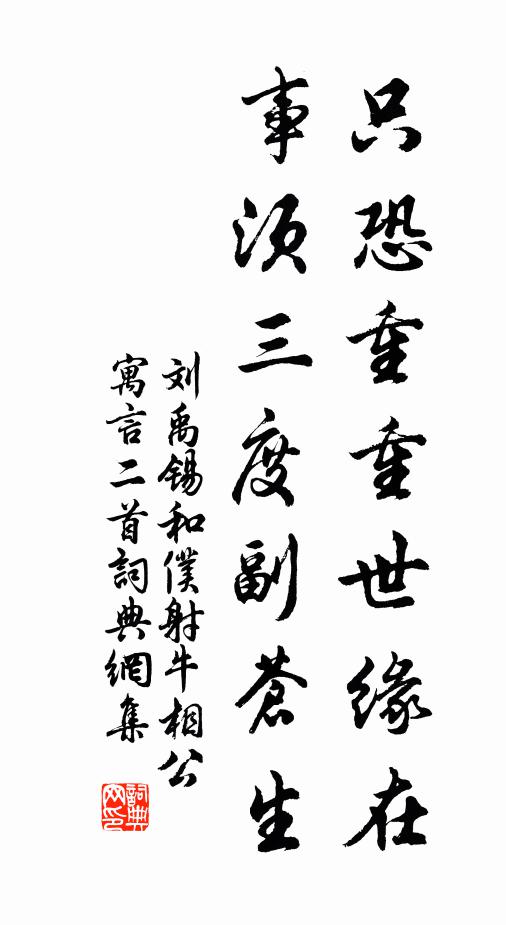 只恐重重世缘在
事须三度副蒼生
刘禹锡和僕射牛相公
寓言二首詞典網集
詞典网印